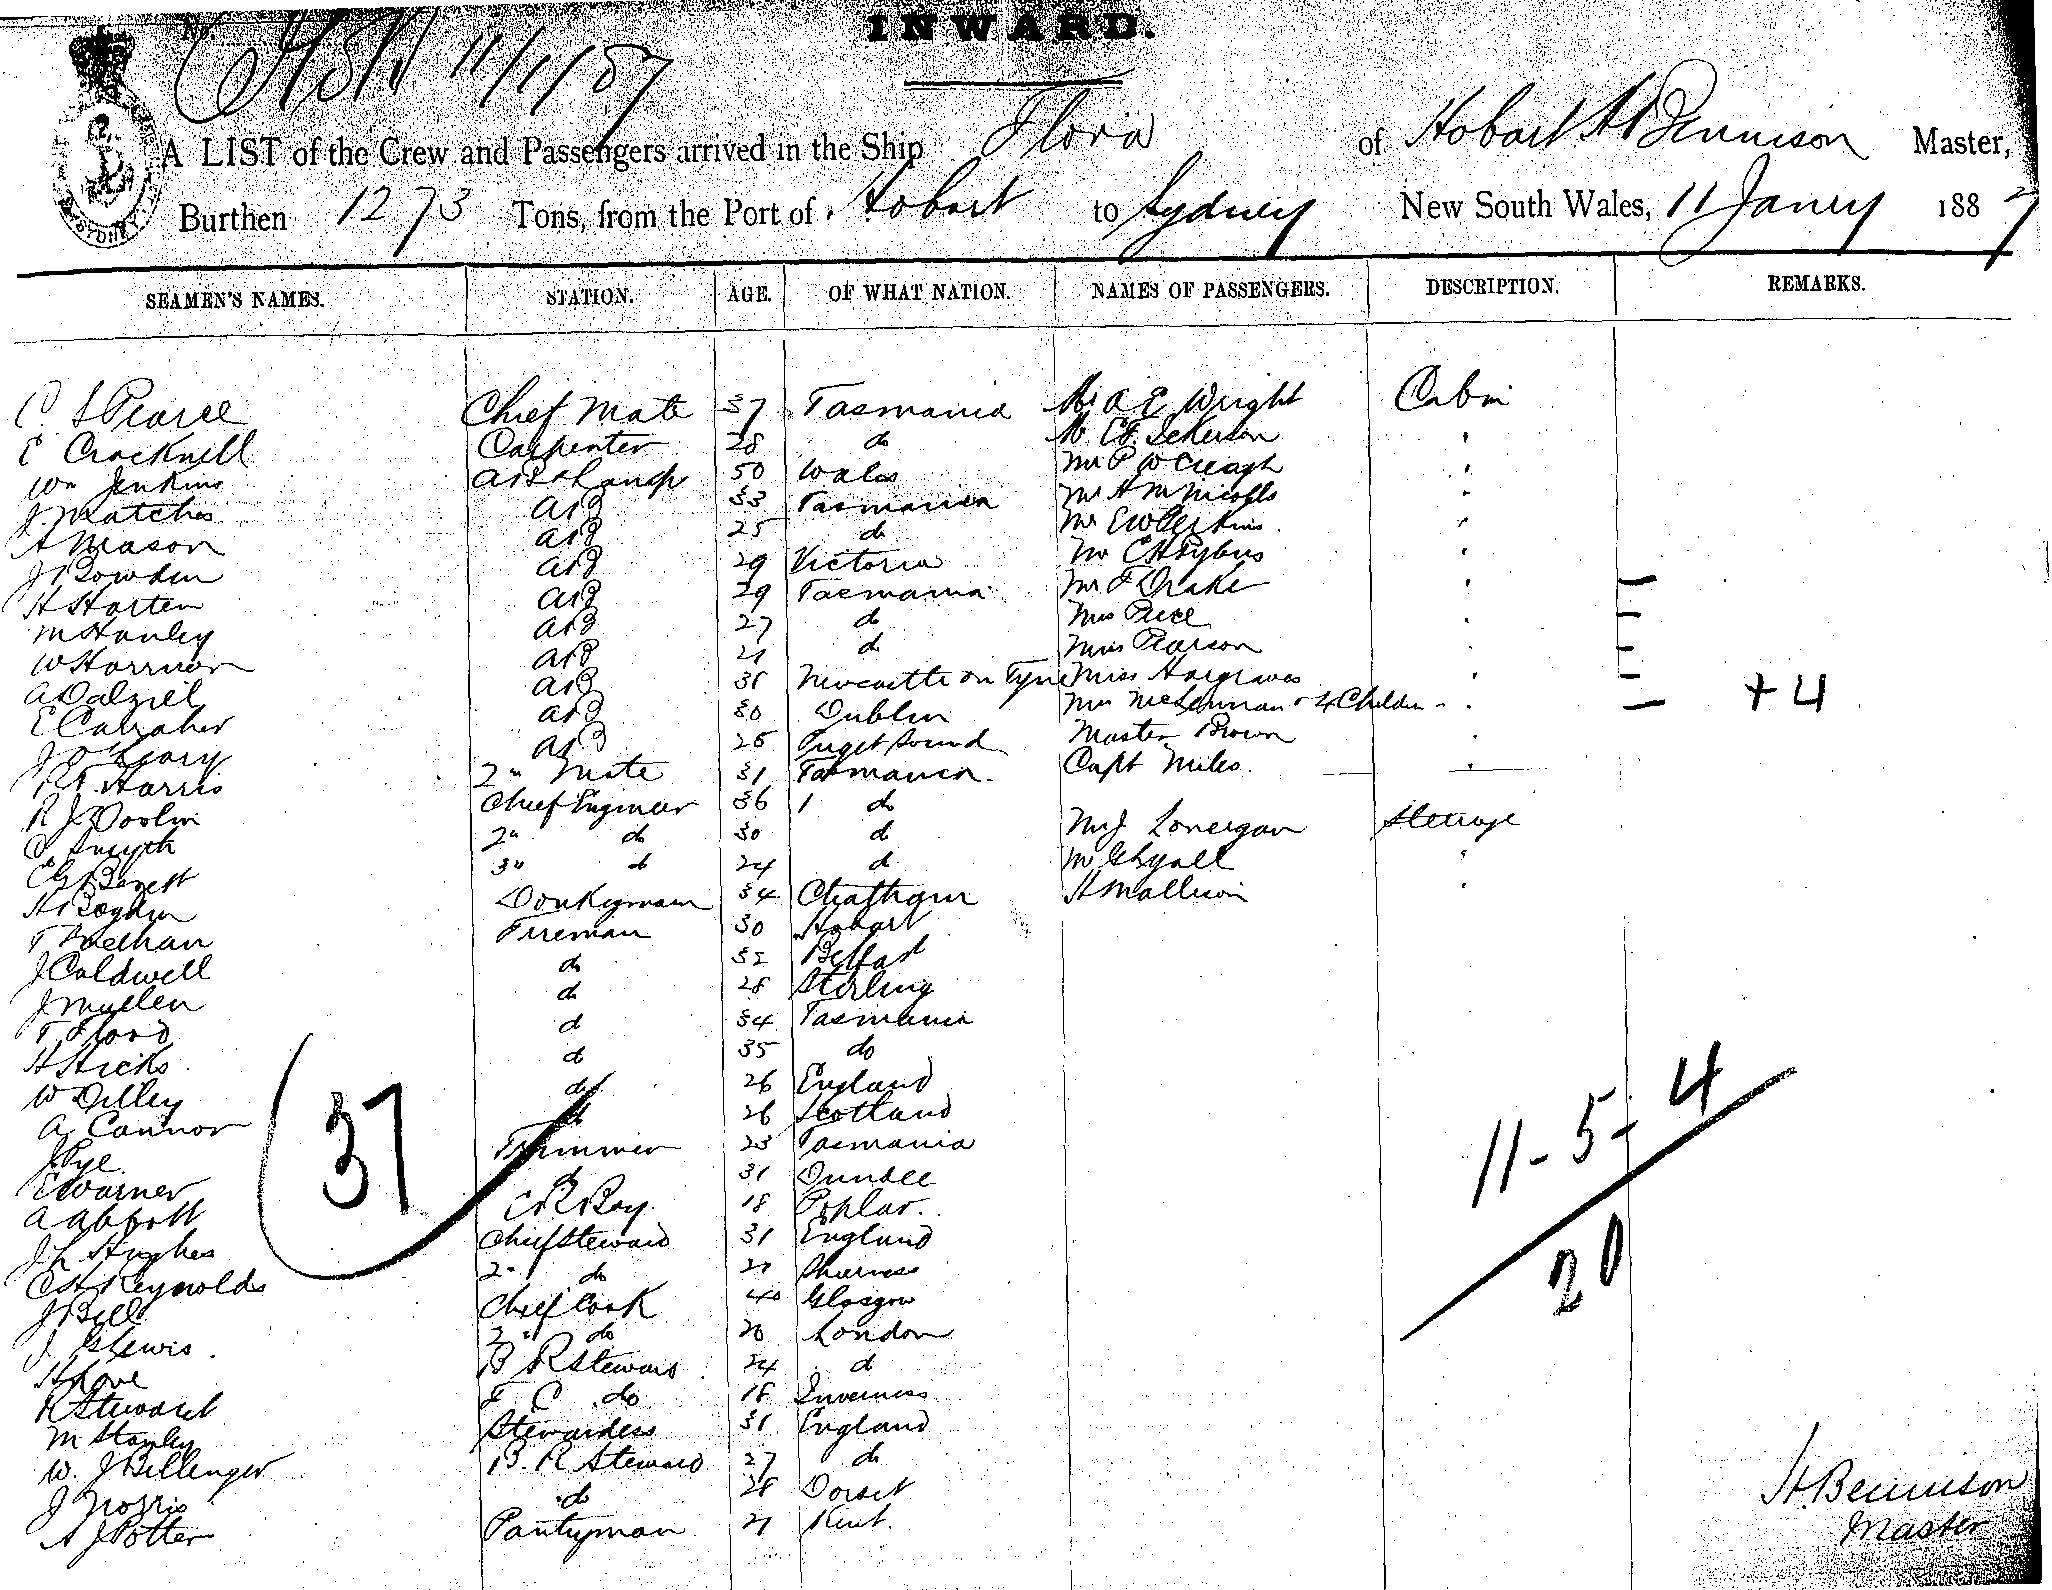 No.
11/1/87
INWARD.
A LIST of the Crew and Passengers arrived in the Ship Flora of Hobart H Bennison Master,
Burthen 1273 Tons, from the Port of Hobart to Sydney New South Wales, 11 Jany 1887
SEAMEN'S NAMES. STATION. AGE. OF WHAT NATION. NAMES OF PASSENGERS. DESCRIPTION. REMARKS.
C S Pearce Chief Mate 37 Tasmania A E Wright Cabin
E Cracknell Carpenter 28 do
Wm Jenkins AB & Lamp 50 Wales Mr P W Creagh
J Matches AB 33 Tasmania Mr H M Nicolls
A Mason AB 25 do Mr E W Perkins
J Bowden AB 29 Victoria Mr C H Pybus
H Harten AB 29 Tasmania Mr F Drake
M Hanley AB 27 do Price
W Harrison AB 21 do Pearson
A Dalziel AB Newcastle on Tyne Miss Hargraves
E Callaher AB 30 Dublin & 4 Children + 4
J O'Leary AB Puget Sound Master Brown
Harris 2nd Mate 31 Tasmania Capt Miles
R J Chief Engineer 36 do
Smyth 2nd do 30 do J Lonergan Steerage
3rd do 24 do Lyall
Donkeyman 34 H Mallison
T Meehan Fireman 30 Hobart
J Caldwell do 32 Belfast
J Mullen do 28 Sterling
T Flood do 34 Tasmania
H Hicks do 35 do
W Dilley do 26 England
A Cannor do 26 Scotland
J Pye Trimmer 23 Tasmania
E Warner do 31 Dundee
A Abbott Boy 18 Poplar
J L Hughes Chief Steward 31 England
C H Reynolds 2nd do 21 Sheerness
J Bell Chief Cook 40 Glasgow
J G Lewis 2nd do 20 London
H Love B R Steward 24 do
R Steward F C do 18 Inverness
M Stanley Stewardess 31 England
W. J Billenger B. R Steward 27 do
J Norris do Dorset
A J Potter Pantryman 21 Kent.
37
11 - 5 - 4
20
H. Bennison
Master